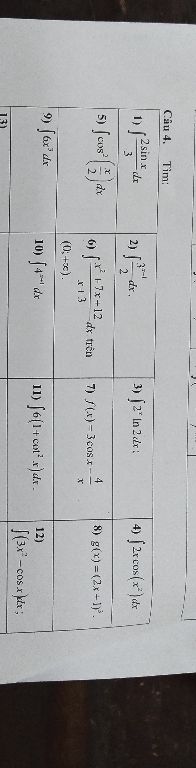 Câu 4. Tìm:
1) ∫ (2sin x)/3 dx
2) ∫ (3^(x−1))/2 dx.
3) ∫ 2^x ln 2 dx;
4) ∫ 2x cos(x²) dx
5) ∫ cos²(x/2) dx
6) ∫ (x² + 7x + 12)/(x + 3) dx trên
(0; +∞).
7) f(x) = 3cos x − 4/x
8) g(x) = (2x + 1)³.
9) ∫ 6x³ dx
10) ∫ 4^(x−1) dx
11) ∫ 6(1 + cot² x) dx.
12)
∫ (3x² − cos x) dx;
13)